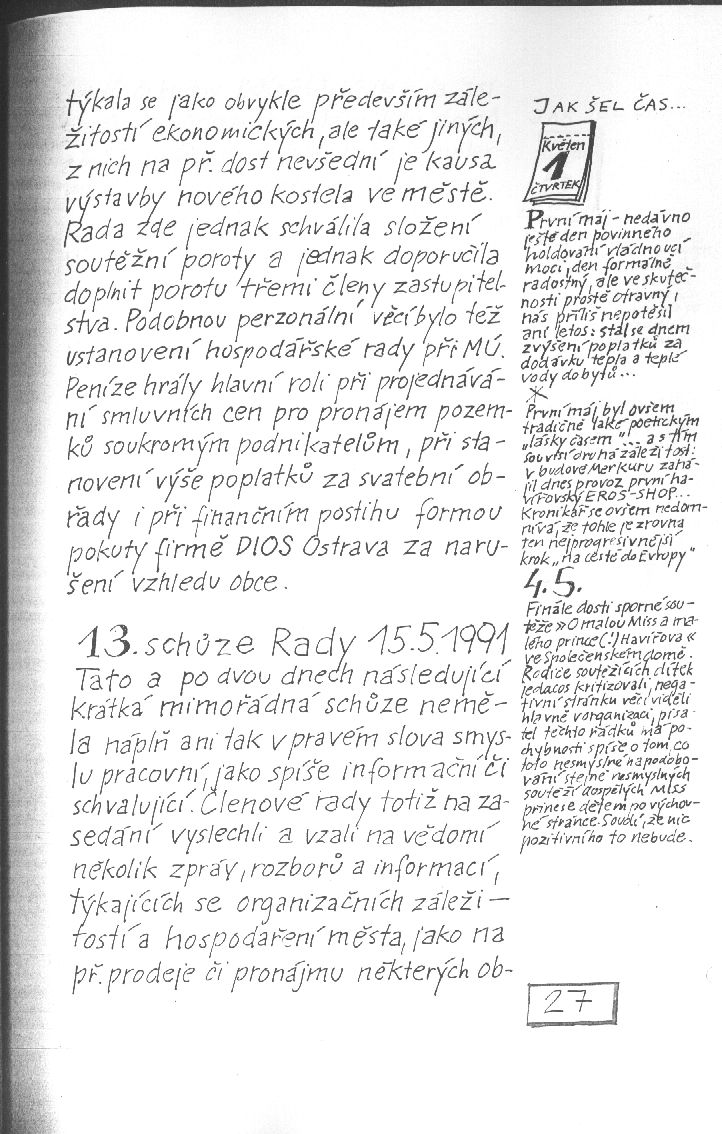 týkala se jako obvykle především zále-
žitostí ekonomických, ale také jiných,
z nich na př. dost nevšední je kausa
výstavby nového kostela ve městě.
Rada zde jednak schválila složení
soutěžní poroty a jednak doporučila
doplnit porotu třemi členy zastupitel-
stva. Podobnou perzonální věcí bylo též
ustanovení hospodářské rady při MÚ.
Peníze hrály hlavní roli při projednává-
ní smluvních cen pro pronájem pozem-
ků soukromým podnikatelům, při sta-
novení výše poplatků za svatební ob-
řady i při finančním postihu formou
pokuty firmě DIOS Ostrava za naru-
šení vzhledu obce.
13. schůze Rady 15.5.1991
Tato a po dvou dnech následující
krátká mimořádná schůze nemě-
la náplň ani tak v pravém slova smys-
lu pracovní, jako spíše informační či
schvalující. Členové rady totiž na za-
sedání vyslechli a vzali na vědomí
několik zpráv, rozborů a informací,
týkajících se organizačních záleži-
tostí a hospodaření města, jako na
př. prodeje či pronájmu některých ob-
JAK ŠEL ČAS...
Květen
1
ČTVRTEK
První máj - nedávno
ještě den povinného
holdování vládnoucí
moci, den formálně
radostný, ale ve skuteč-
nosti prostě otravný,
nás příliš nepotěšil
ani letos: stal se dnem
zvýšení poplatků za
dodávku tepla a teplé
vody do bytů...
První máj byl ovšem
tradičně také poetickým
„lásky časem"... a s tím
souvisí druhá záležitost:
v budově Merkuru zahá-
jil dnes provoz první ha-
vířovský EROS-SHOP...
Kronikář se ovšem nedom-
nívá, že tohle je zrovna
ten nejprogresivnější
krok „na cestě do Evropy"
4.5.
Finále dosti sporné sou-
těže »O malou Miss a ma-
lého prince (!) Havířova«
ve Společenském domě.
Rodiče soutěžících dítek
ledacos kritizovali, nega-
tivní stránku věci viděli
hlavně v organizaci, pisa-
tel těchto řádků má po-
chybnosti spíše o tom, co
toto nesmyslné napodobo-
vání stejně nesmyslných
soutěží dospělých Miss
přinese dětem po výchov-
né stránce. Soudí, že nic
pozitivního to nebude.
27